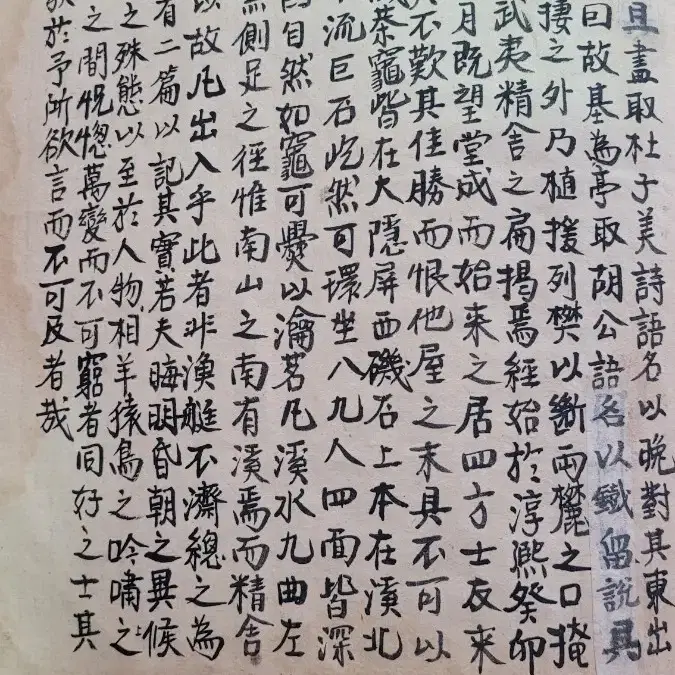 且盡取杜子美詩語名以晚對其東出
曰故基為亭取胡公語名以鐵留說具
之外乃植援列樊以斷兩麓之口掩
武夷精舍之扁揭焉經始於淳熙癸卯
月既望堂成而始來之居四方士友來
不歎其佳勝而恨他屋之未具不可以
茶竈皆在大隱屏西磯石上本在溪北
流巨石屹然可環坐八九人四面皆深
自然如竈可爨以瀹茗凡溪水九曲左
側足之徑惟南山之南有溪焉而精舍
以故凡出入乎此者非漁艇不濟總之為
有二篇以記其實若夫晦明昏朝之異候
之殊態以至於人物相羊猿鳥之吟嘯之
之間怳惚萬變而不可窮者同好之士其
於予所欲言而不可及者哉